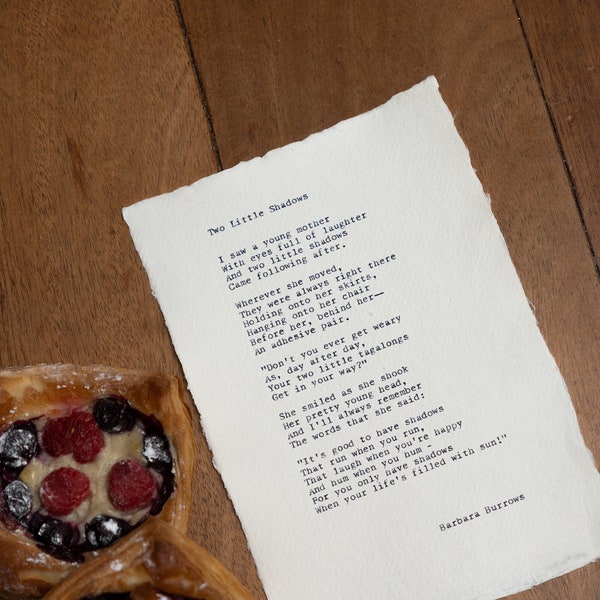 Two Little Shadows
I saw a young mother
With eyes full of laughter
And two little shadows
Came following after.
Wherever she moved,
They were always right there
Holding onto her skirts,
Hanging onto her chair
Before her, behind her—
An adhesive pair.
"Don't you ever get weary
As, day after day,
Your two little tagalongs
Get in your way?"
She smiled as she shook
Her pretty young head,
And I'll always remember
The words that she said:
"It's good to have shadows
That run when you run,
That laugh when you're happy
And hum when you hum -
For you only have shadows
When your life's filled with sun!"
Barbara Burrows